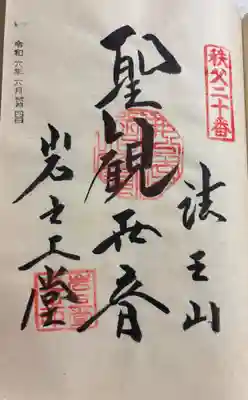 秩父二十番
法王山
聖観世音
岩之上堂
令和六年六月